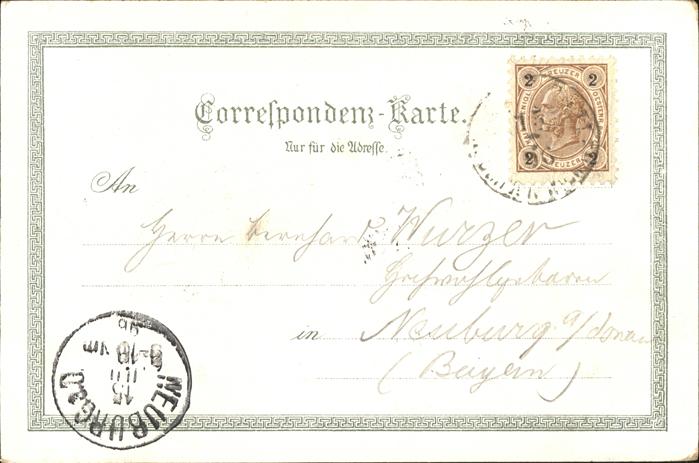 2 KREUZER 2
2 KREUZER 2
Correspondenz-Karte.
Nur für die Adresse.
An
Herrn Bernhard Wurzer
Hochwohlgeboren
in Neuburg a/Donau
(Bayern)
NEUBURG a/D
15
III
9-10 Vm
96